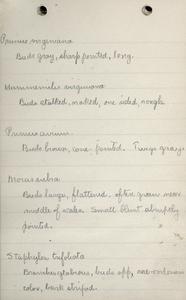 Prunus virginiana
Buds gray, sharp pointed, long.
Hammamelis virginiana
Buds stalked, naked, one sided, rough
Prunus avium.
Buds brown, cone-pointed. Twigs gray
Morus alba
Buds large, flattened. often green near
middle of scales. Small blunt abruptly
pointed.
Staphylea trifoliata
Branches glabrous, buds opp, red-brown
color, bark striped.